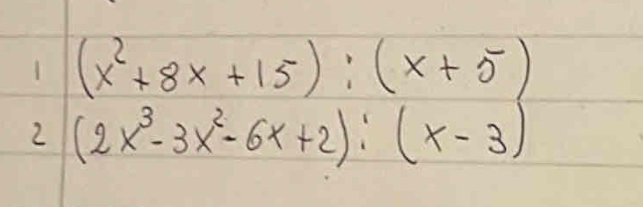 1 (x²+8x+15):(x+5)
2 (2x³-3x²-6x+2):(x-3)